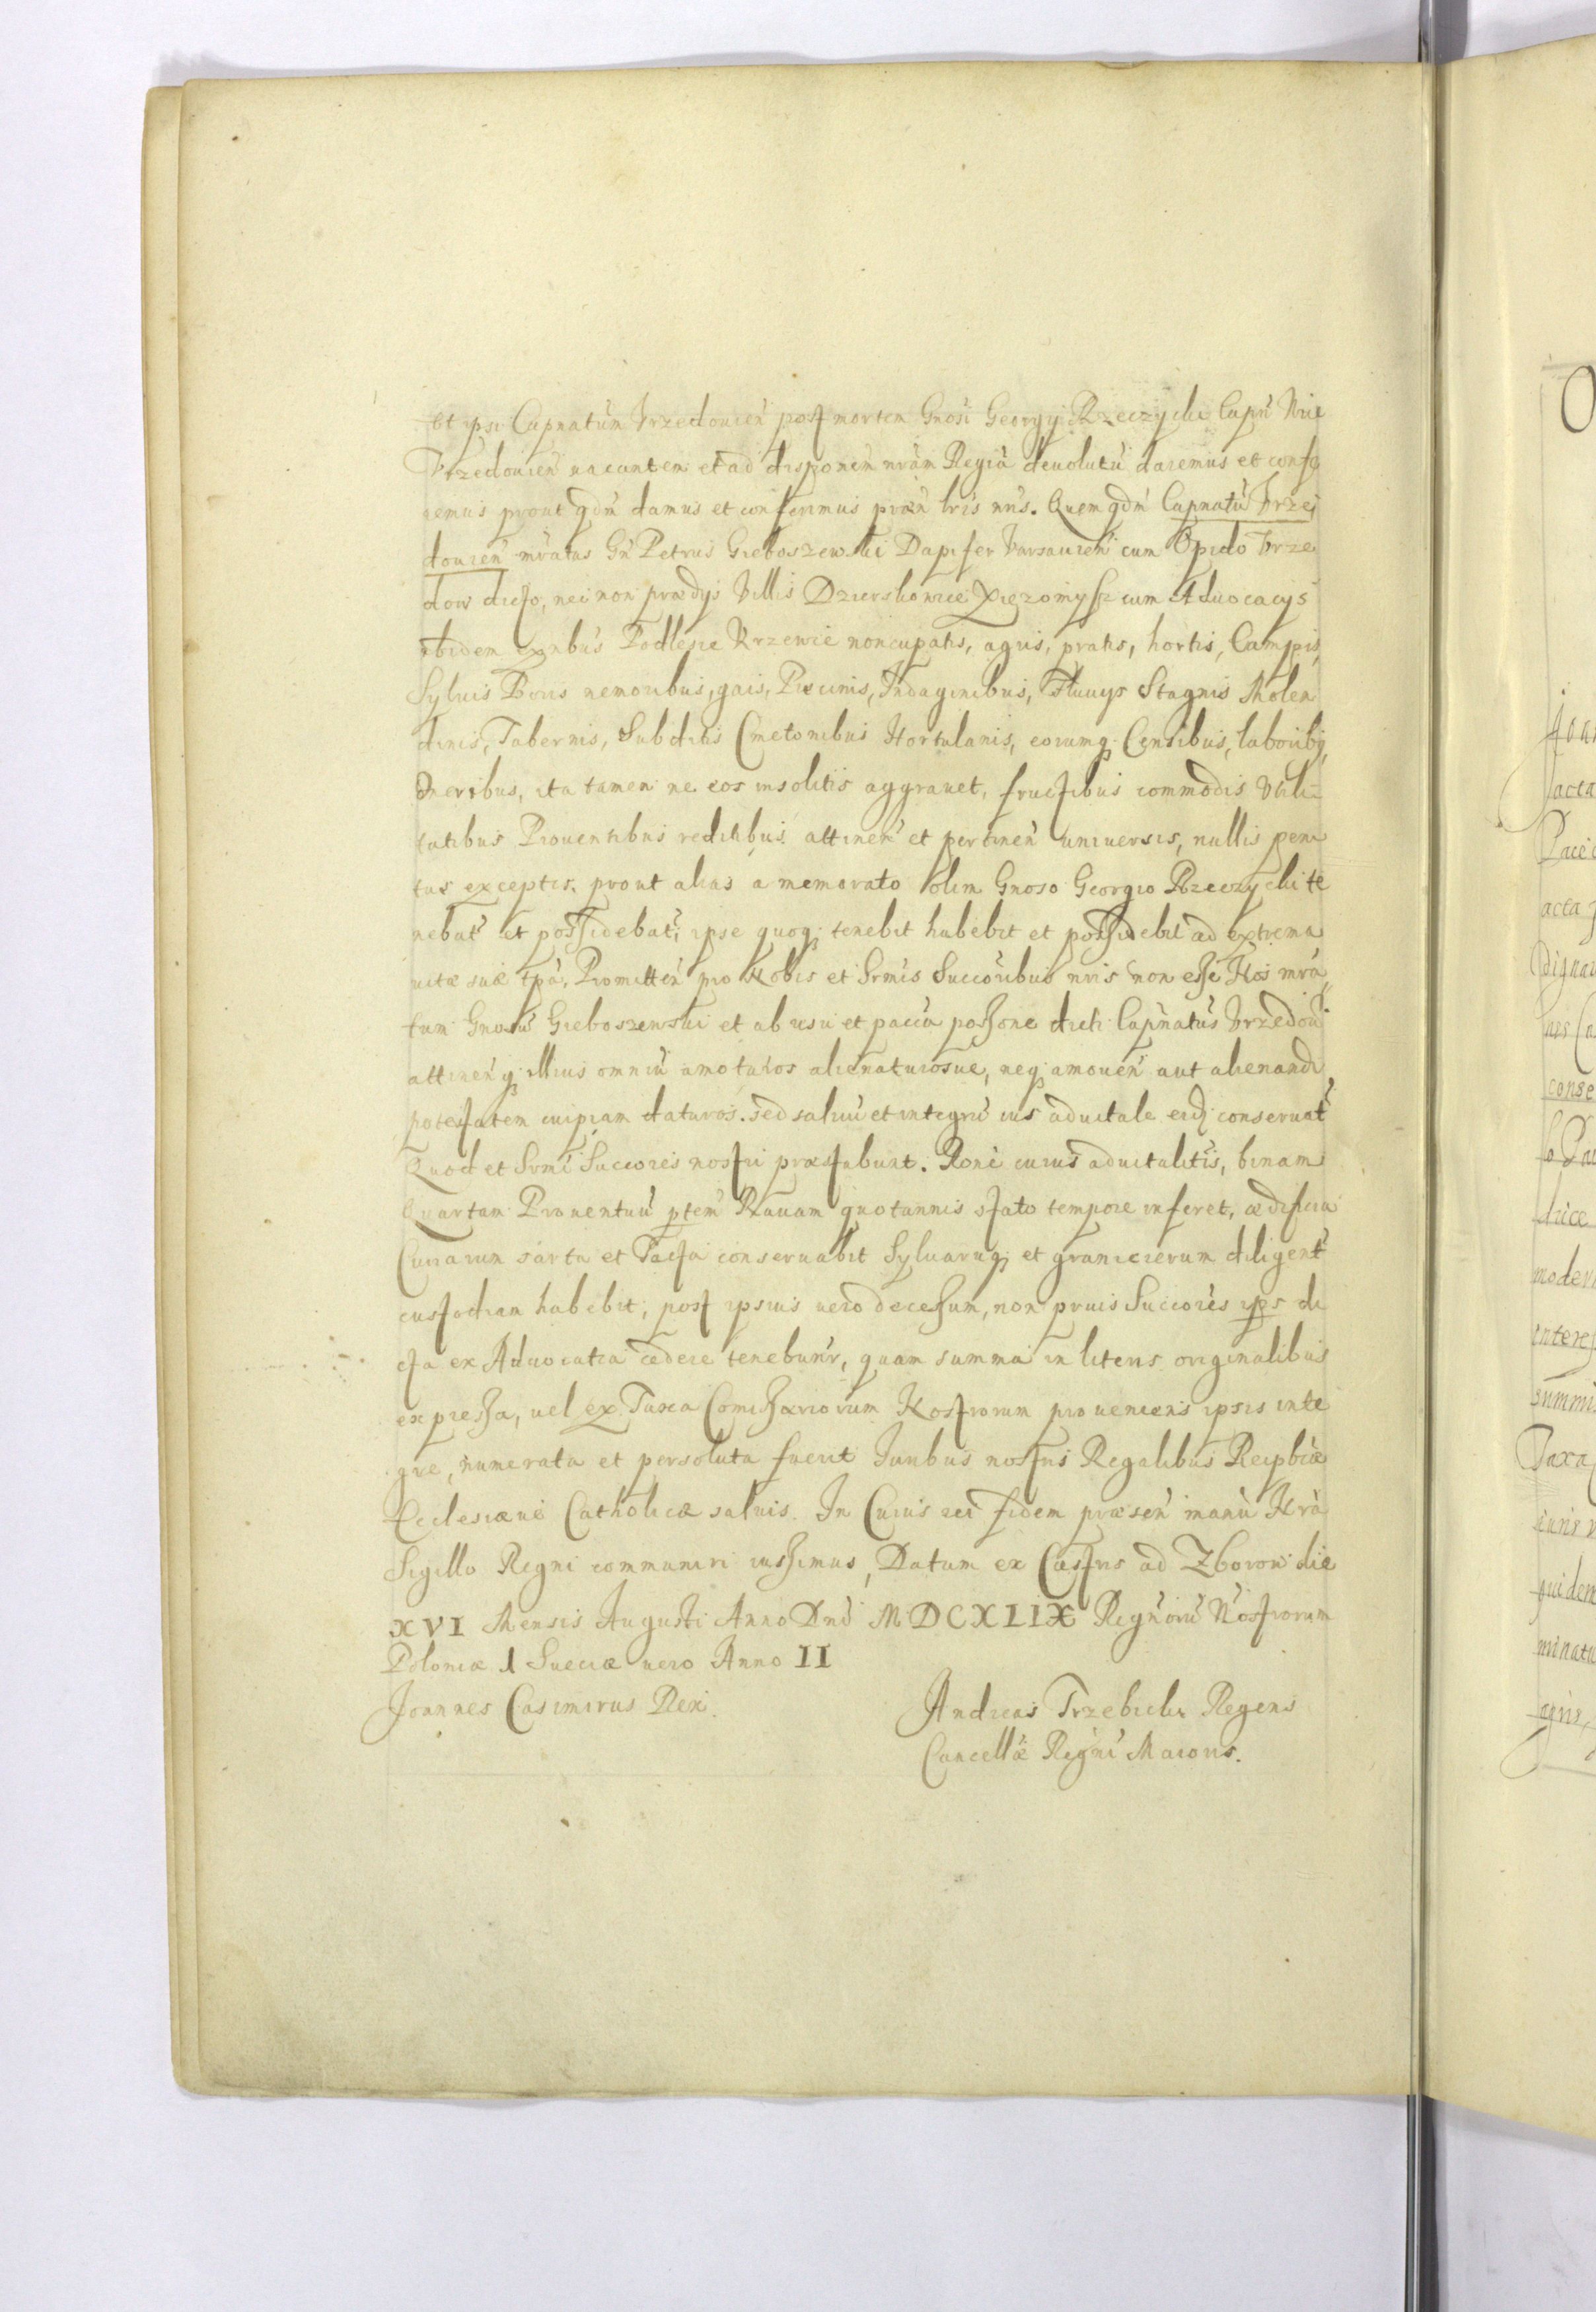 et ipsi Capnatum Vrzedouien post mortem Gnosi Georgij Rzeczycki Capn Nri
Vrzedouien uacantem et ad disponem nram Regia deuolutu daremus et confe
remus prout qdm damus et conferimus præn lris nris. Quem qdm Capnatu Vrze
douien mratus Gn Petrus Greboszewski Dapifer Varsauien cum Opido Vrze
dow dicto, nec non prædijs Villis Dzierzkowice Xiezomysz cum Aduocacijs
ibidem Podlesie Vrzewie noncupatis, agris, pratis, hortis, Campis,
Syluis Boris nemoribus, gais, Piscinis, Indaginibus, Fluuijs Stagnis Molen
dinis, Tabernis, Subditis Cmetonibus Hortulanis, eorumq Censibus, laboribq,
Oneribus, ita tamen ne eos insolitis aggrauet, fructibus commodis Vtili-
tatibus Prouentibus reditibus attinen et pertinen uniuersis, nullis peni
tus exceptis. prout alias a memorato olim Gnoso Georgio Rzeczycki te
nebat et possidebat, ipse quoq tenebit habebit et possidebit ad extrema
uitæ suæ tpa, Promitten pro Nobis et Srmis Succoribus nris non esse Nos mra
tum Gnosu Greboszewski et ab usu et pacca possone dicti Capnatus Vrzedou
attinenq illius omniu amoturos alienaturosue, neq amouen aut alienandi
potestatem cuipiam daturos. sed saluu et integru ius aduitale eidz conseruat
Quod et Srmi Succores nostri præstabunt. Rone cuius aduitalitis, binam
Quartam Prouentuu ptem Rauam quotannis stato tempore inferet, ædificia
Curarum sarta et Tacta conseruabit Syluaruq et granicierum diligent
custodiam habebit, post ipsius uero decessum, non prius Succores ips di
cta ex Aduocatia cedere tenebunr, quam summa in literis originalibus
expressa, uel ex Taxa Comissariorum Nostrorum proueniens ipsis inte
gre, numerata et persoluta fuerit Iuribus nostris Regalibus Reipbcæ
Ecclesiæue Catholicæ saluis. In Cuius rei fidem præsen manu Nra
Sigillo Regni communiri iussimus, Datum ex Castris ad Zborow die
XVI Mensis Augusti Anno Dni MDCXLIX Regnoru Nostrorum
Poloniæ I Sueciæ uero Anno II
Joannes Casimirus Rex. Andreas Trzebicki Regens
Cancellæ Regni Maioris.